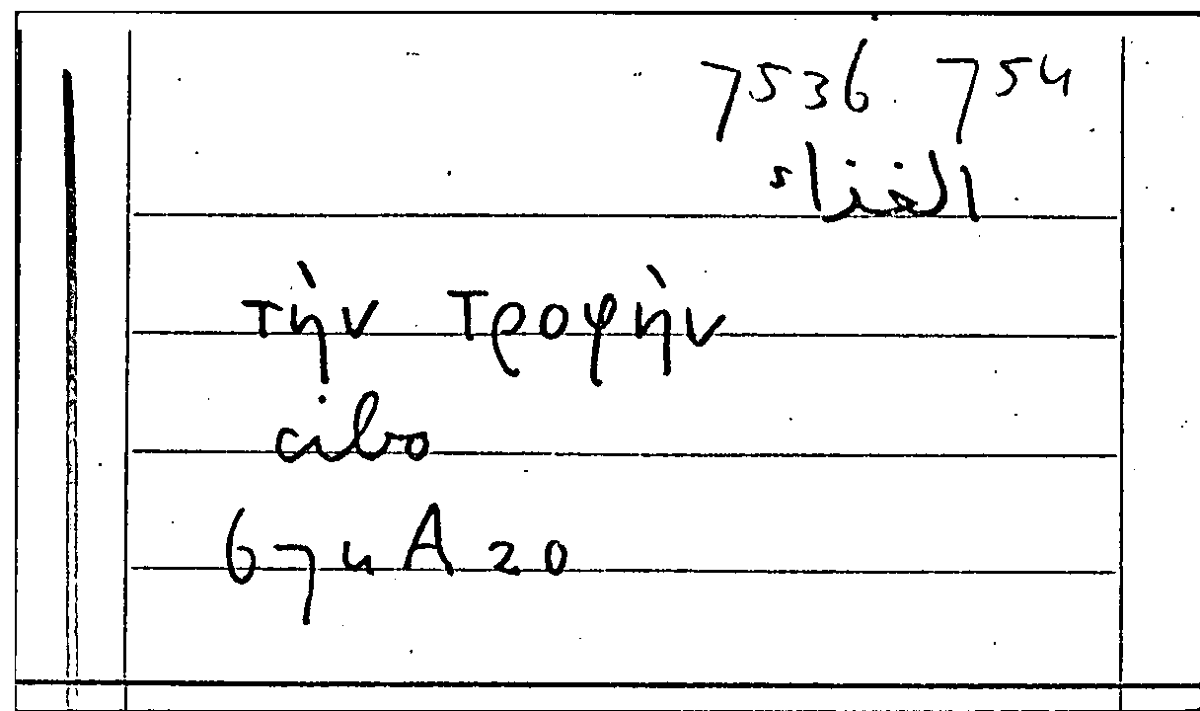 7536 754
الغذاء
τὴν τροφὴν
cibo
674 A 20